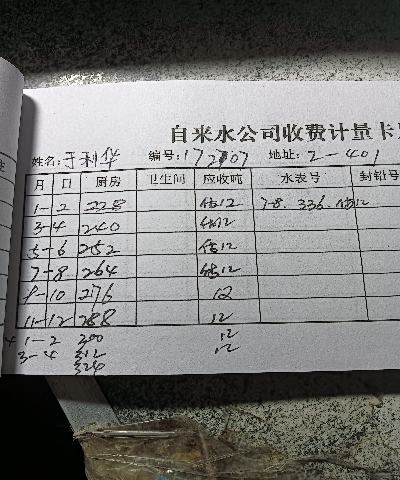 自来水公司收费计量卡
姓名:于利华 编号:172707 地址:2-401
月 日 厨房 卫生间 应收吨 水表号 封铅号
1-2 228 估12 7-8. 336. 估12
3-4 240 估12
5-6 252 估12
7-8 264 估12
9-10 276 12
11-12 288 12
1-2 300 12
3-4 312 12
324